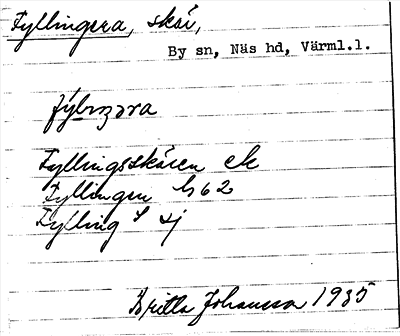 Fyllingera, skär,
By sn, Näs hd, Värml.l.
Fyllingsskären ek
Fyllingen h62
Fylling s sj
Britta Johansson 1935